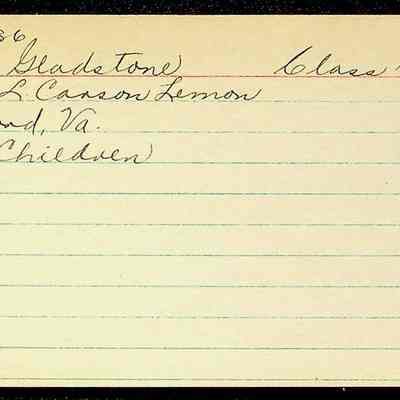 36
Gladstone Class
L. Carson Lemon
ord, Va.
Children